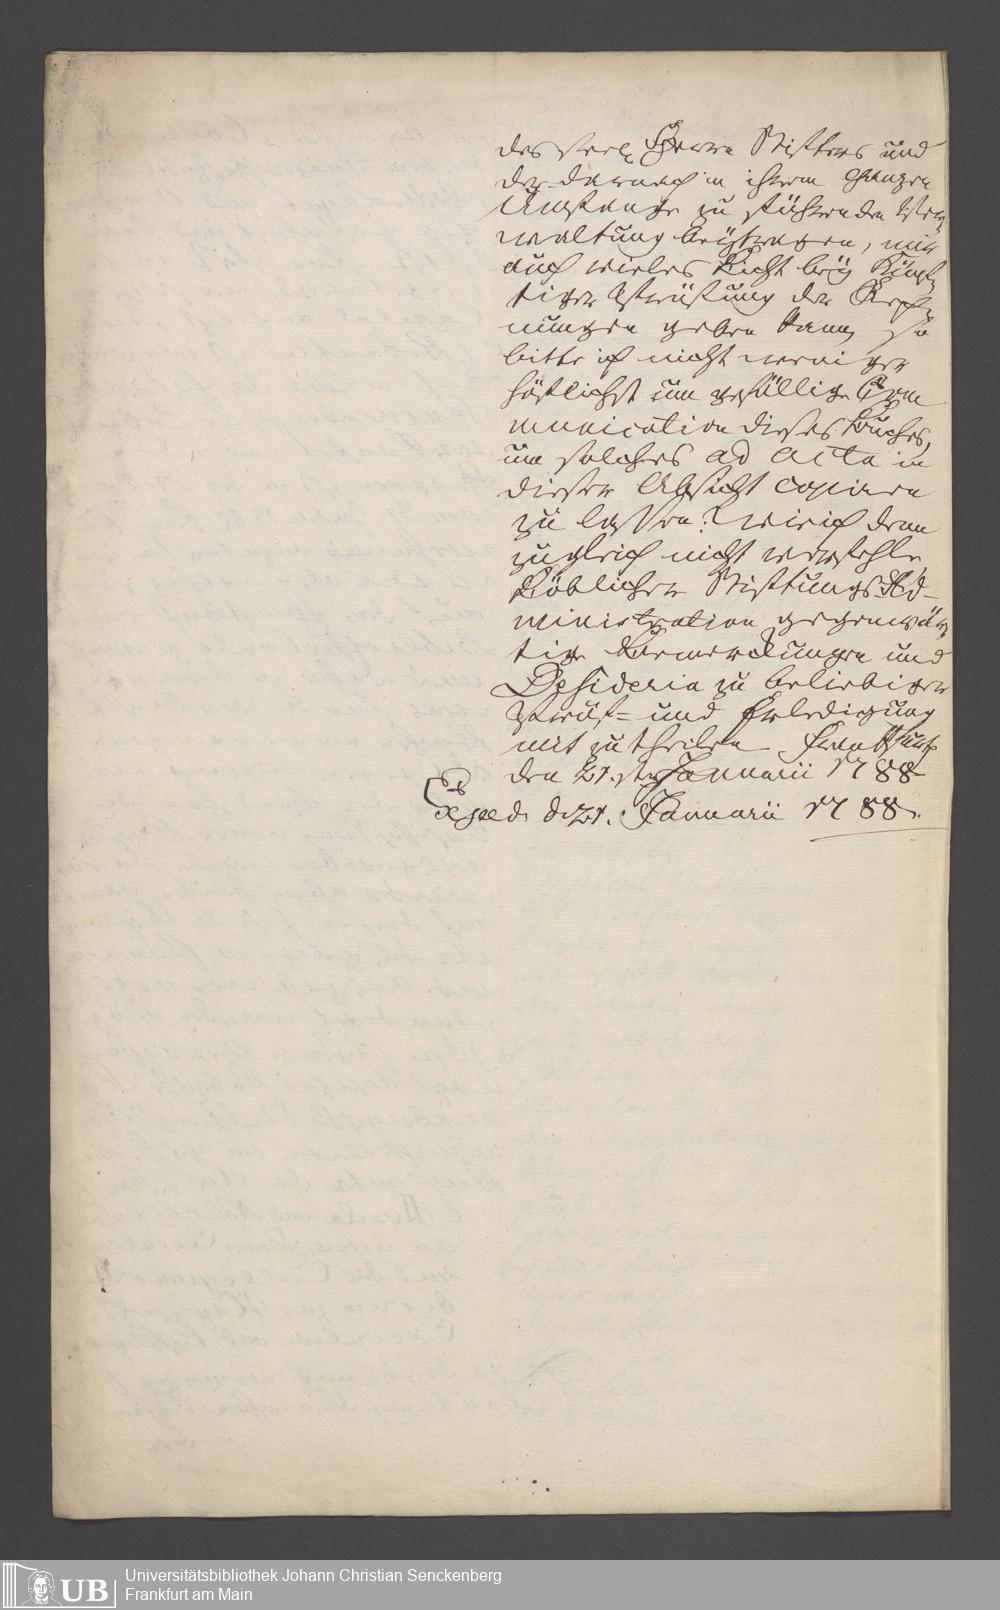 des seel. Herrn Stifters und
der darnach in ihrem ganzen
Umfange zu führenden Ver-
waltung beytragen, mir
auch vieles Licht bey künf-
tiger Prüfung der Rech-
nungen geben kann, so
bitte ich nicht weniger
höflichst um gefällige Com
munication dieses Buches,
um solches ad acta in
dieser Absicht copiren
zu lassen. Wie ich denn
zugleich nicht verfehle
Löblicher Stiftungs-Ad-
ministration gegenwär-
tige Bemerckungen und
Desideria zu beliebiger
Prüf- und Erledigung
mit zu theilen. Franckfurt
den 21. Januarii 1788
Exped. d. 21. Januarii 1788.
UB
Universitätsbibliothek Johann Christian Senckenberg
Frankfurt am Main